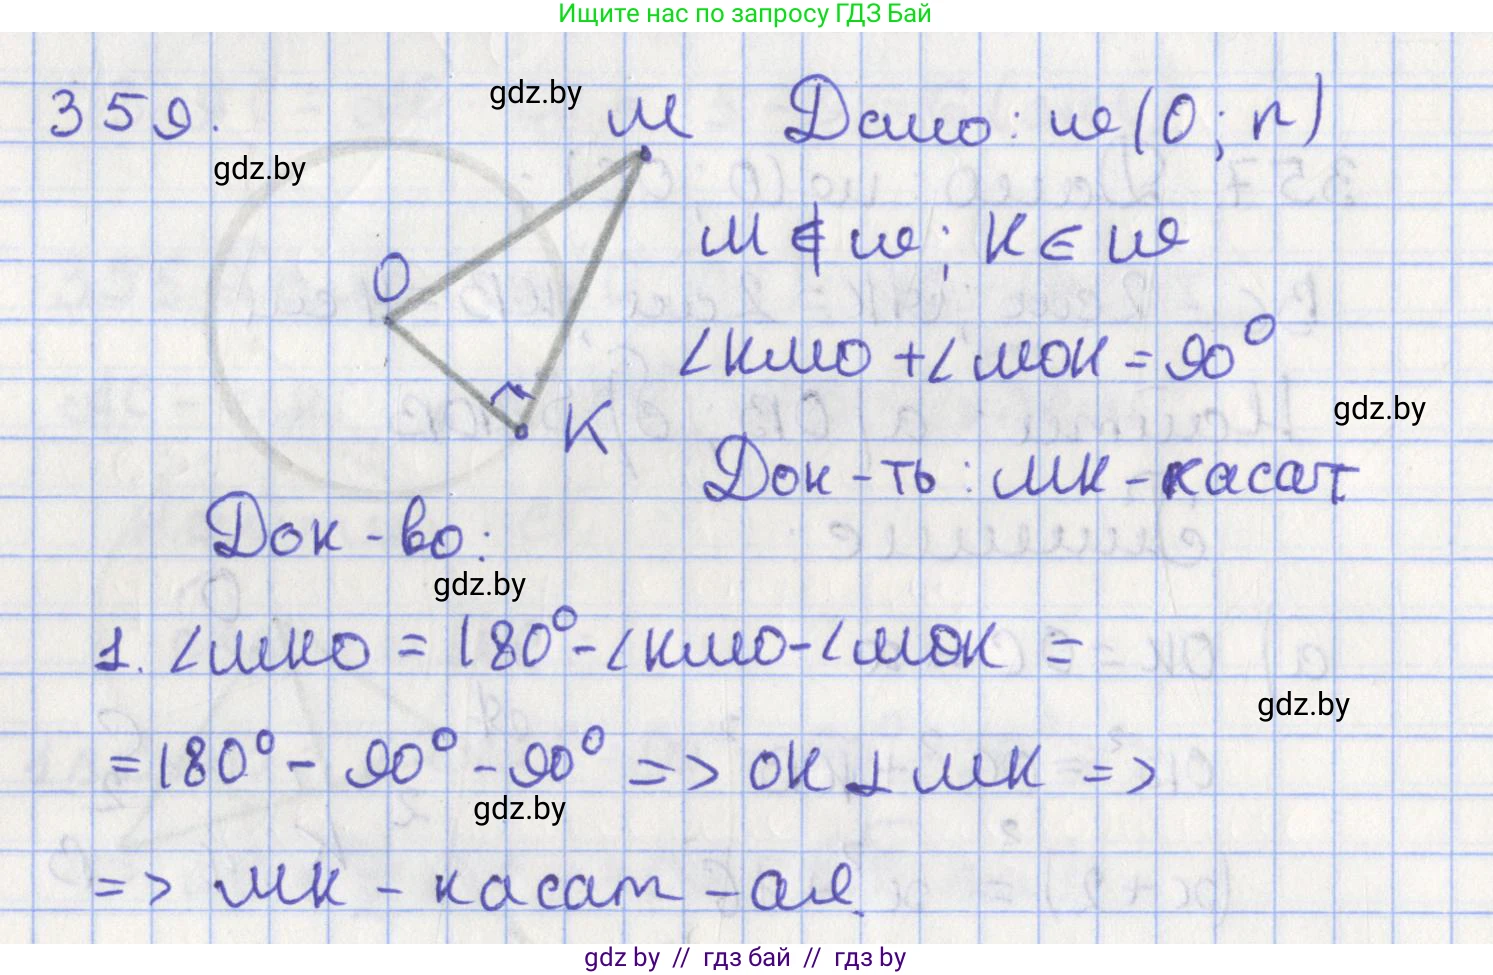 Ищите нас по запросу ГДЗ Бай
359.
gdz.by
gdz.by
M
O
K
Дано: ω(O; r)
M ∉ ω; K ∈ ω
∠KMO + ∠MOK = 90°
gdz.by
Док-ть: MK - касат
Док-во:
gdz.by
1. ∠MKO = 180° - ∠KMO - ∠MOK =
gdz.by
= 180° - 90° - 90° => OK ⊥ MK =>
gdz.by
=> MK - касат-ая.
gdz by // гдз бай // гдз by